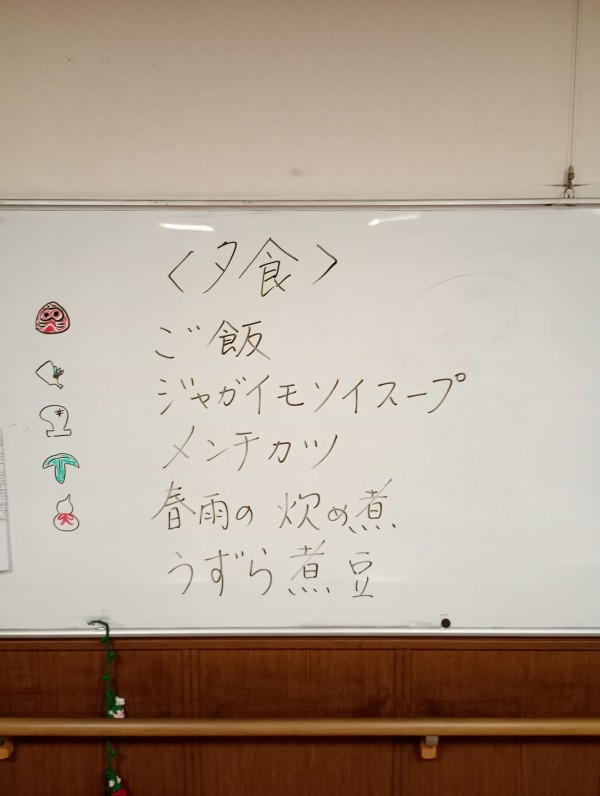 〈夕食〉
ご飯
ジャガイモソイスープ
メンチカツ
春雨の炊め煮
うずら煮豆